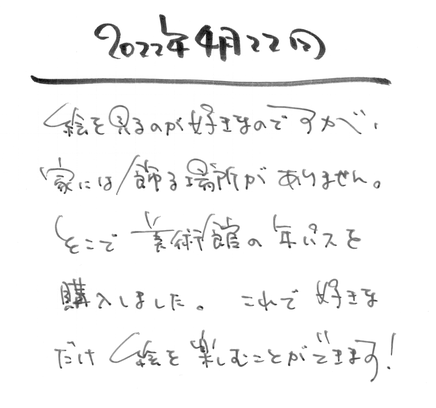 2022年4月22日
絵を見るのが好きなのですが、
家には飾る場所がありません。
そこで美術館の年パスを
購入しました。これで好きな
だけ絵を楽しむことができます!